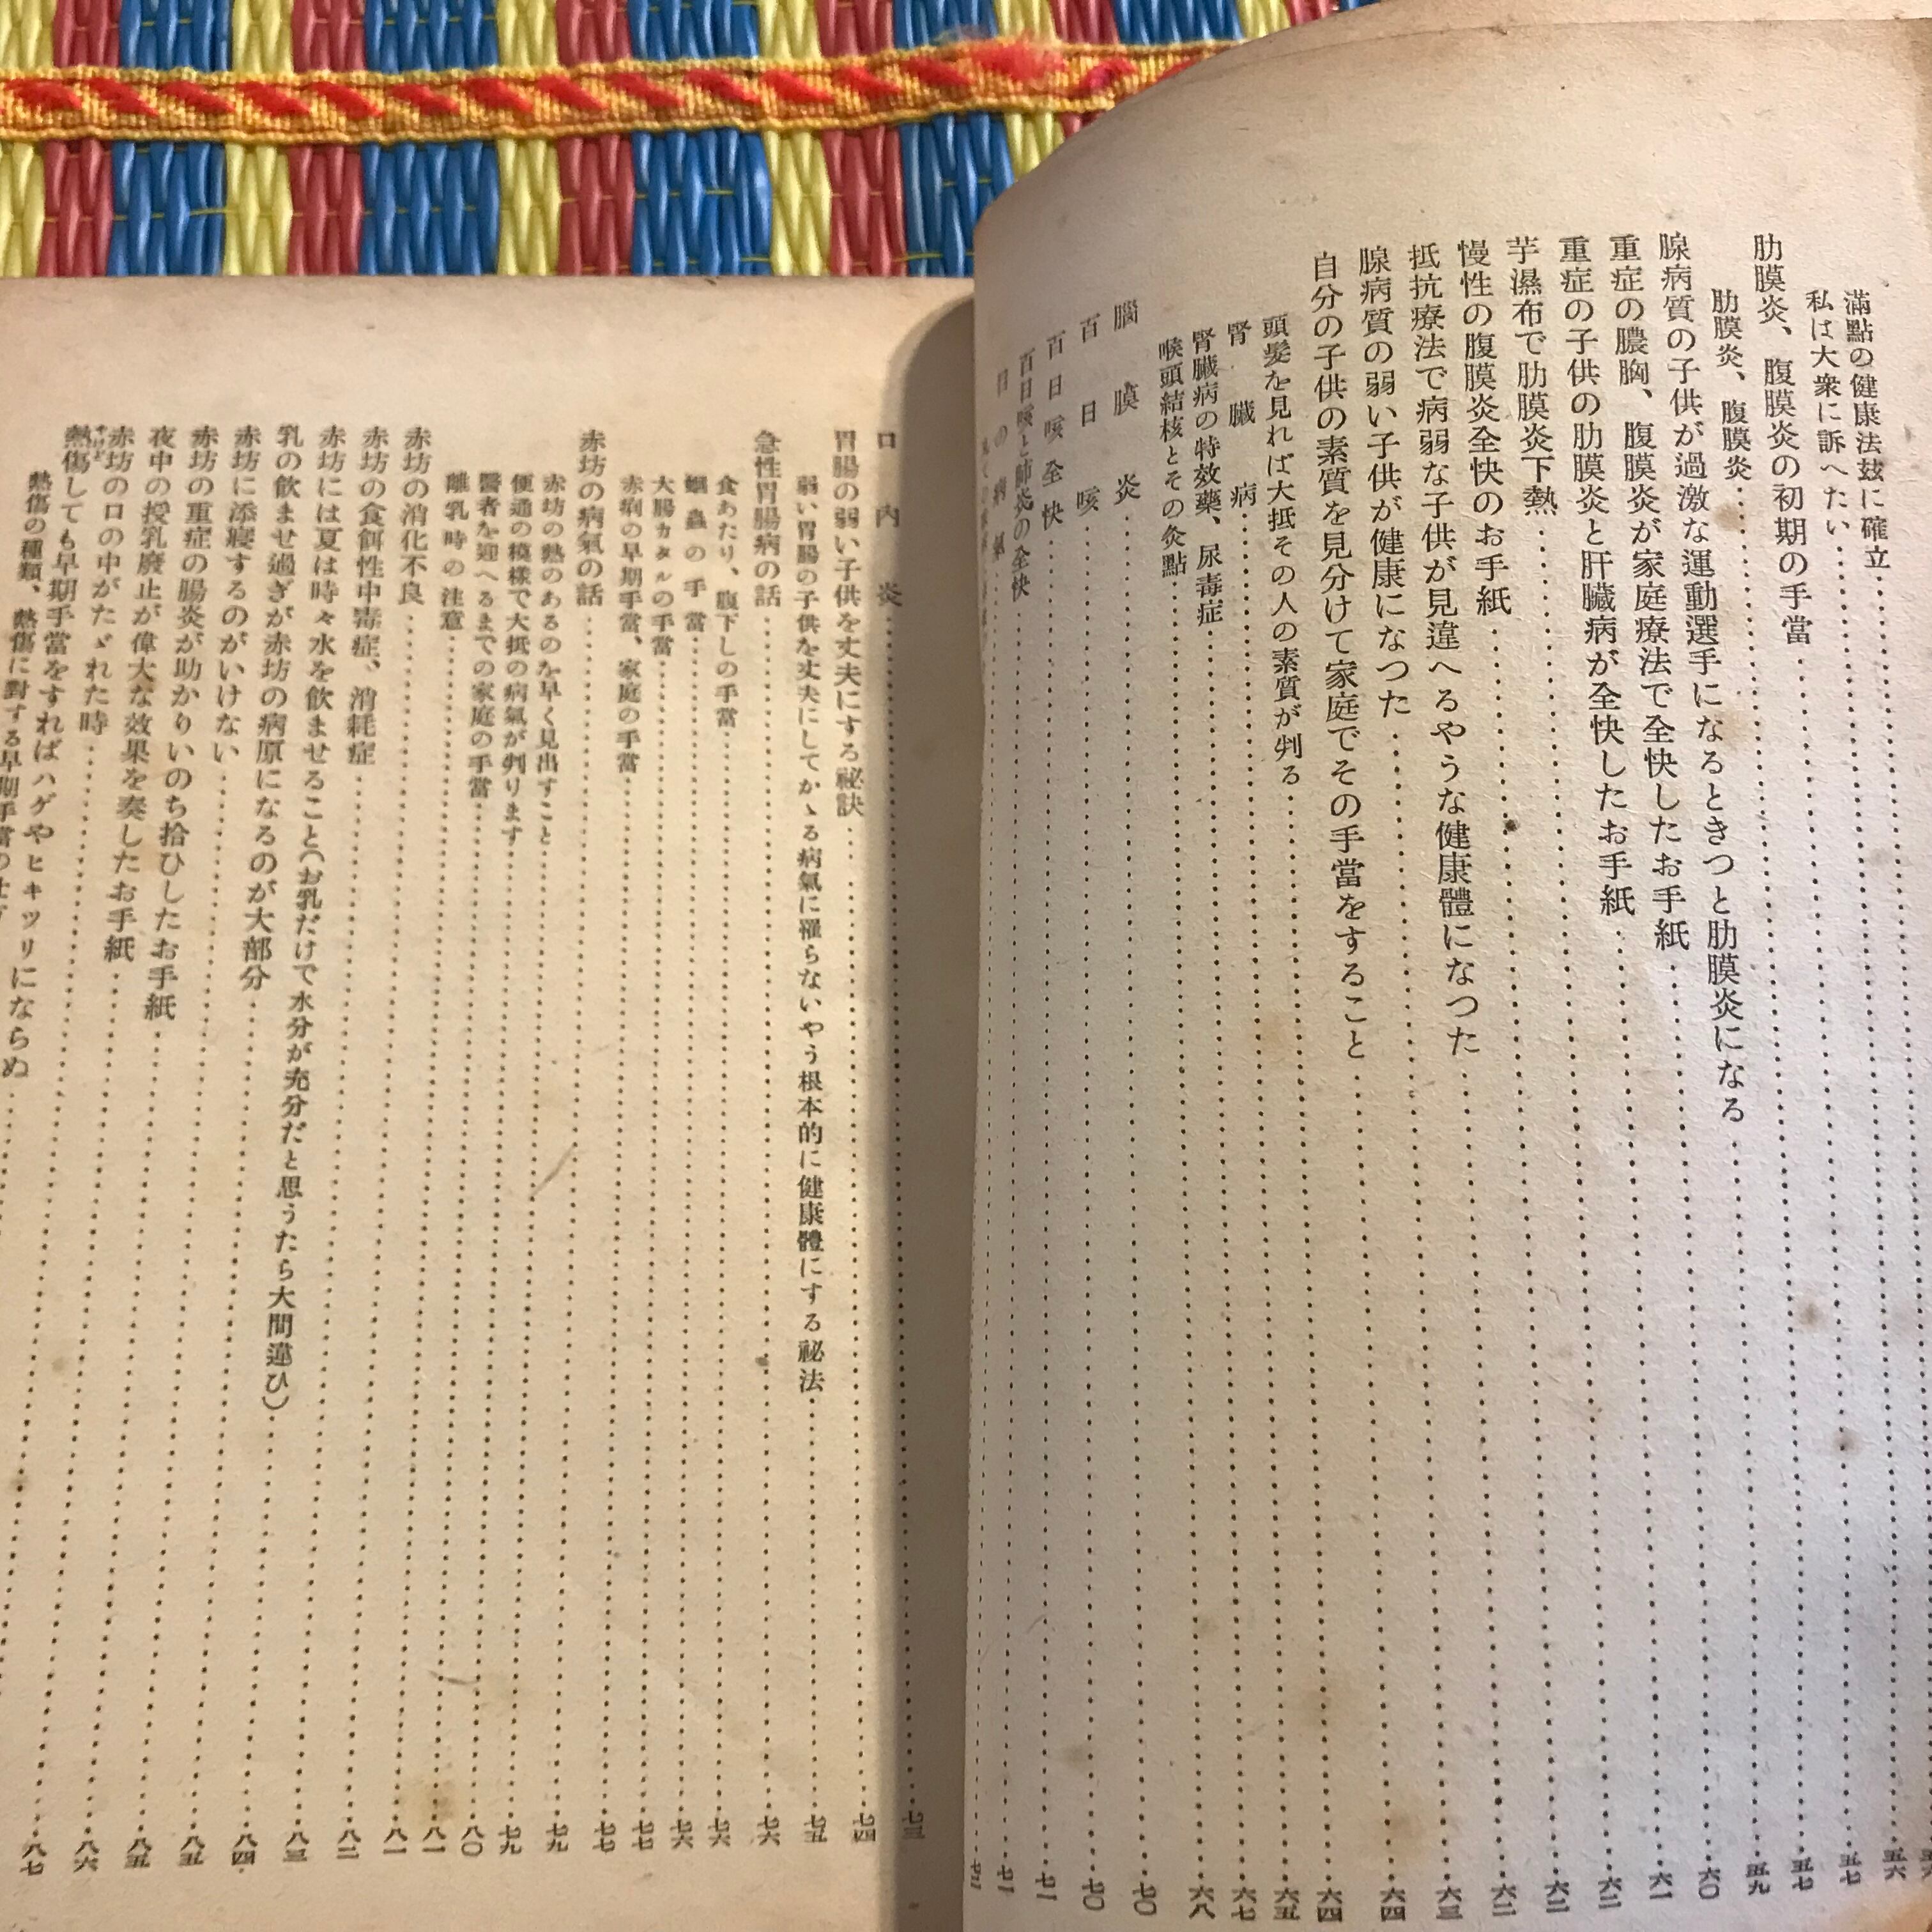 滿點の健康法玆に確立……五六
私は大衆に訴へたい……五七
肋膜炎、腹膜炎の初期の手當……五七
肋膜炎、腹膜炎……五九
腺病質の子供が過激な運動選手になるときつと肋膜炎になる……六〇
重症の膿胸、腹膜炎が家庭療法で全快したお手紙……六一
重症の子供の肋膜炎と肝臓病が全快したお手紙……六二
芋濕布で肋膜炎下熱……六二
慢性の腹膜炎全快のお手紙……六二
抵抗療法で病弱な子供が見違へるやうな健康體になつた……六三
腺病質の弱い子供が健康になつた……六四
自分の子供の素質を見分けて家庭でその手當をすること……六四
頭髪を見れば大抵その人の素質が判る……六五
腎臓病……六七
腎臓病の特效藥、尿毒症……六八
喉頭結核とその灸點
腦膜炎……七〇
百日咳……七〇
百日咳全快……七一
百日咳と肺炎の全快……七一
口内炎……七三
胃腸の弱い子供を丈夫にする祕訣……七四
弱い胃腸の子供を丈夫にしてかゝる病氣に罹らないやう根本的に健康體にする祕法……七五
急性胃腸病の話……七六
食あたり、腹下しの手當……七六
蛔蟲の手當……七六
大腸カタルの手當……七七
赤痢の早期手當、家庭の手當……七七
赤坊の病氣の話……七九
赤坊の熱のあるのを早く見出すこと……七九
便通の模樣で大抵の病氣が判ります……八〇
醫者を迎へるまでの家庭の手當……八一
離乳時の注意……八一
赤坊の消化不良……八二
赤坊の食餌性中毒症、消耗症……八三
赤坊には夏は時々水を飲ませること（お乳だけで水分が充分だと思うたら大間違ひ）……八四
乳の飲ませ過ぎが赤坊の病原になるのが大部分……八五
赤坊に添寢するのがいけない……八五
赤坊の重症の腸炎が助かりいのち拾ひしたお手紙……八六
夜中の授乳廢止が偉大な效果を奏したお手紙……八七
赤坊の口の中がたゞれた時
熱傷しても早期手當をすればハゲやヒキツリにならぬ
熱傷の種類、熱傷に對する早期手當の仕方